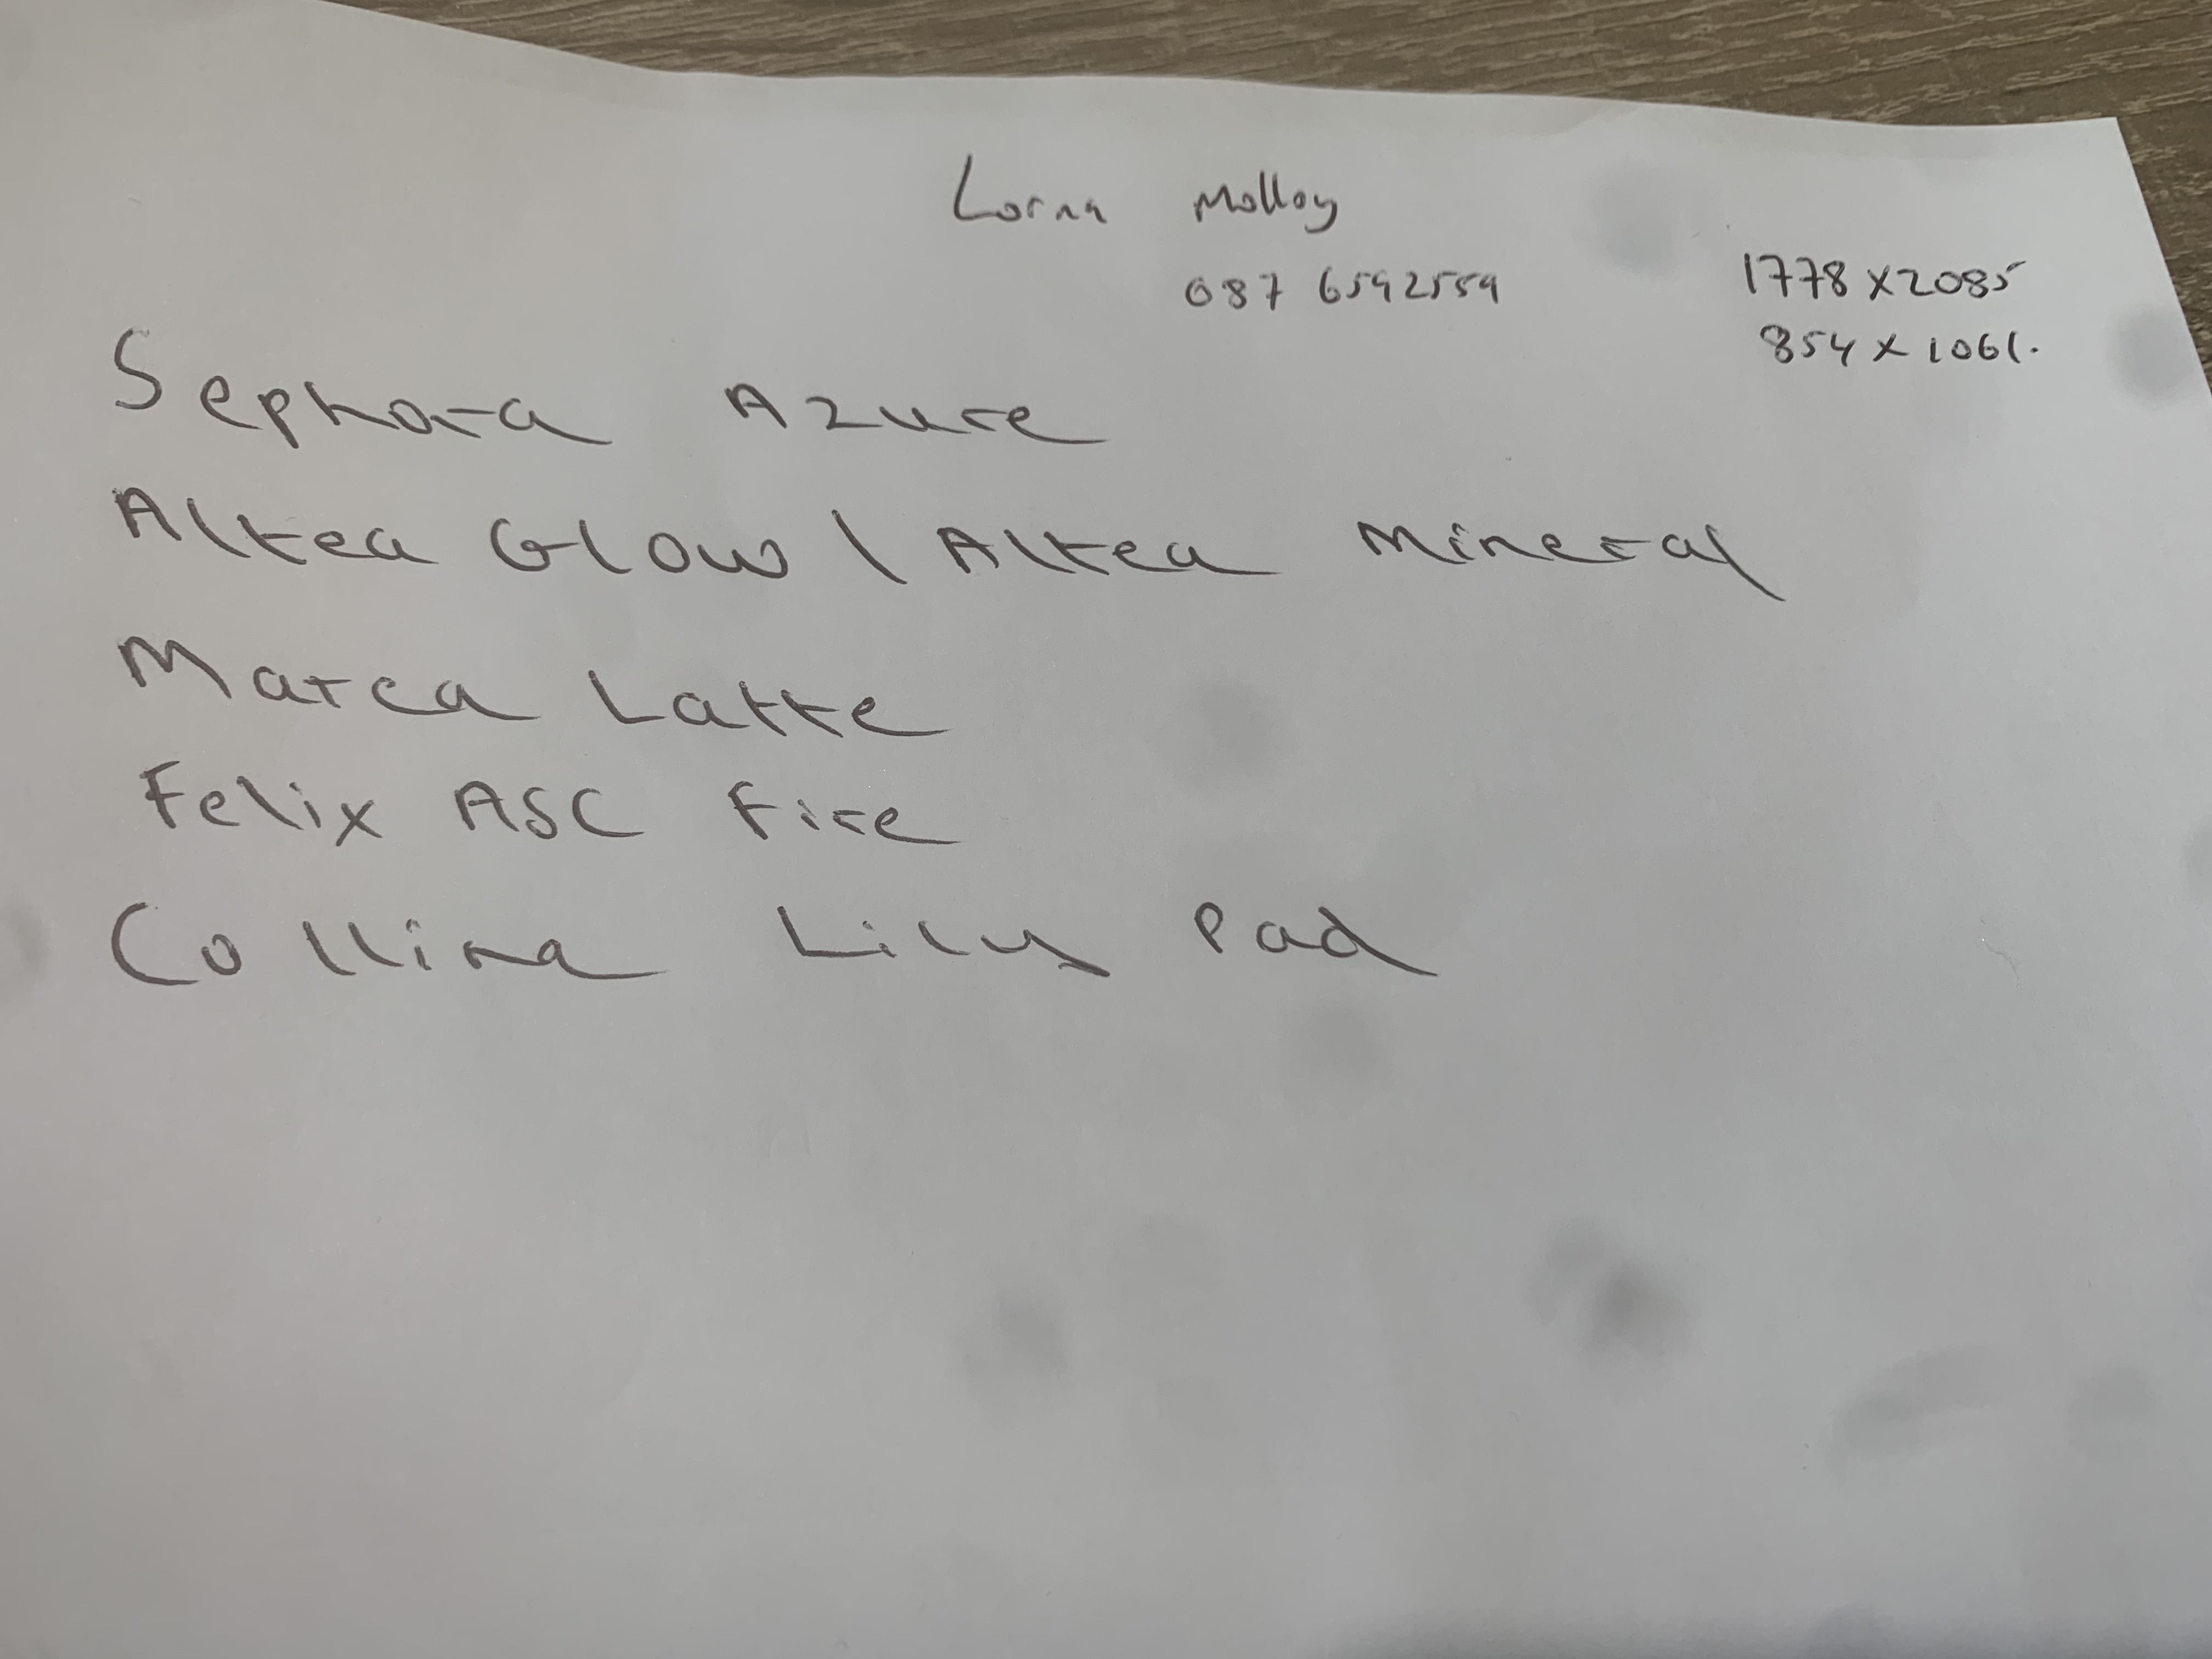 Lorna Molloy
087 6592559
1778 x 2085
854 x 1061.
Sephora Azure
Altea Glow \ Altea Mineral
Marca Latte
Felix ASC Fire
Collina Lily Pad